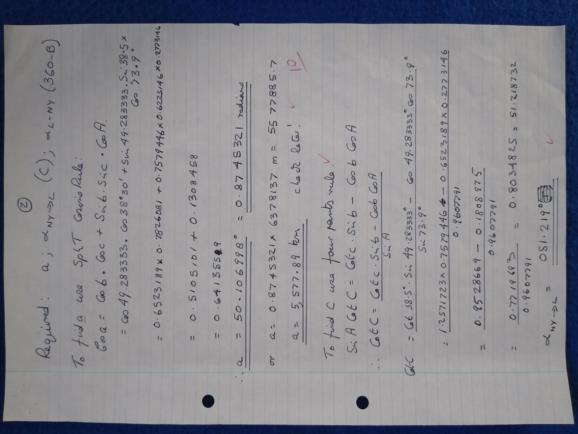 ②
Required: a; α NY→L (C); α L-NY (360-B)
To find a use SpℓT Cosine Rule:
Cos a = Cos b. Cos c + Sin b. Sin c. Cos A
= Cos 49.283333. Cos 38°30' + Sin 49.283333. Sin 38.5 x
Cos 73.9°
= 0.6523189 x 0.7826081 + 0.7579446 x 0.6225146 x 0.2773146
= 0.5105101 + 0.1308458
= 0.6413559
∴ a = 50.106998° = 0.8745321 radians
or a = 0.8745321 x 6378137 m = 5577885.7
a = 5,577.89 km check later! ✓ 10
To find C use four parts rule: ✓
Sin A Cot C = Cot c. Sin b - Cos b Cos A
∴ Cot C = Cot c. Sin b - Cos b Cos A
Sin A
Cot C = Cot 38.5°. Sin 49.283333° - Cos 49.283333° Cos 73.9°
Sin 73.9°
= 1.2571723 x 0.7579446 - 0.6523189 x 0.2773146
0.9607791
= 0.9528669 - 0.1808975
0.9607791
= 0.7719693 = 0.8034825 = 51.218732
0.9607791
α NY→L = 051.219° ✓